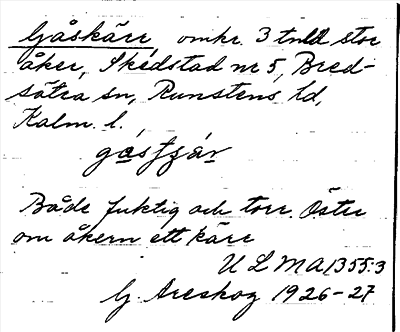 Gåskärr omkr. 3 tnld stor
åker, Skedstad nr 5, Bred-
sätra sn, Runstens hd,
Kalm. l.
gåsʃʒär
Både fuktig och torr. Öster
om åkern ett kärr
U L M A 1355:3
G. Areskog 1926-27